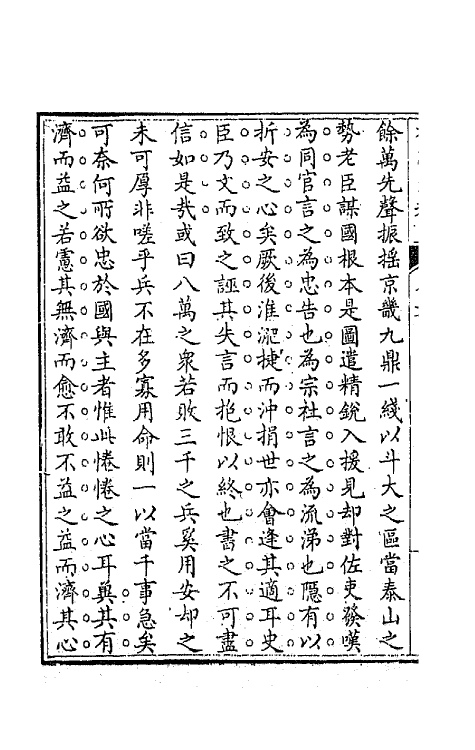 餘萬先聲振搖京畿九鼎一綫以斗大之區當泰山之
勢老臣謀國根本是圖遣精銳入援見却對佐吏發嘆
為同官言之為忠告也為宗社言之為流涕也隱有以
折安之心矣厥後淮淝捷而沖捐世亦會逢其適耳史
臣乃文而致之誣其失言而抱恨以終也書之不可盡
信如是哉或曰八萬之衆若敗三千之兵奚用安却之
未可厚非嗟乎兵不在多寡用命則一以當千事急矣
可奈何所欲忠於國與主者惟此惓惓之心耳冀其有
濟而益之若慮其無濟而愈不敢不益之益而濟其心